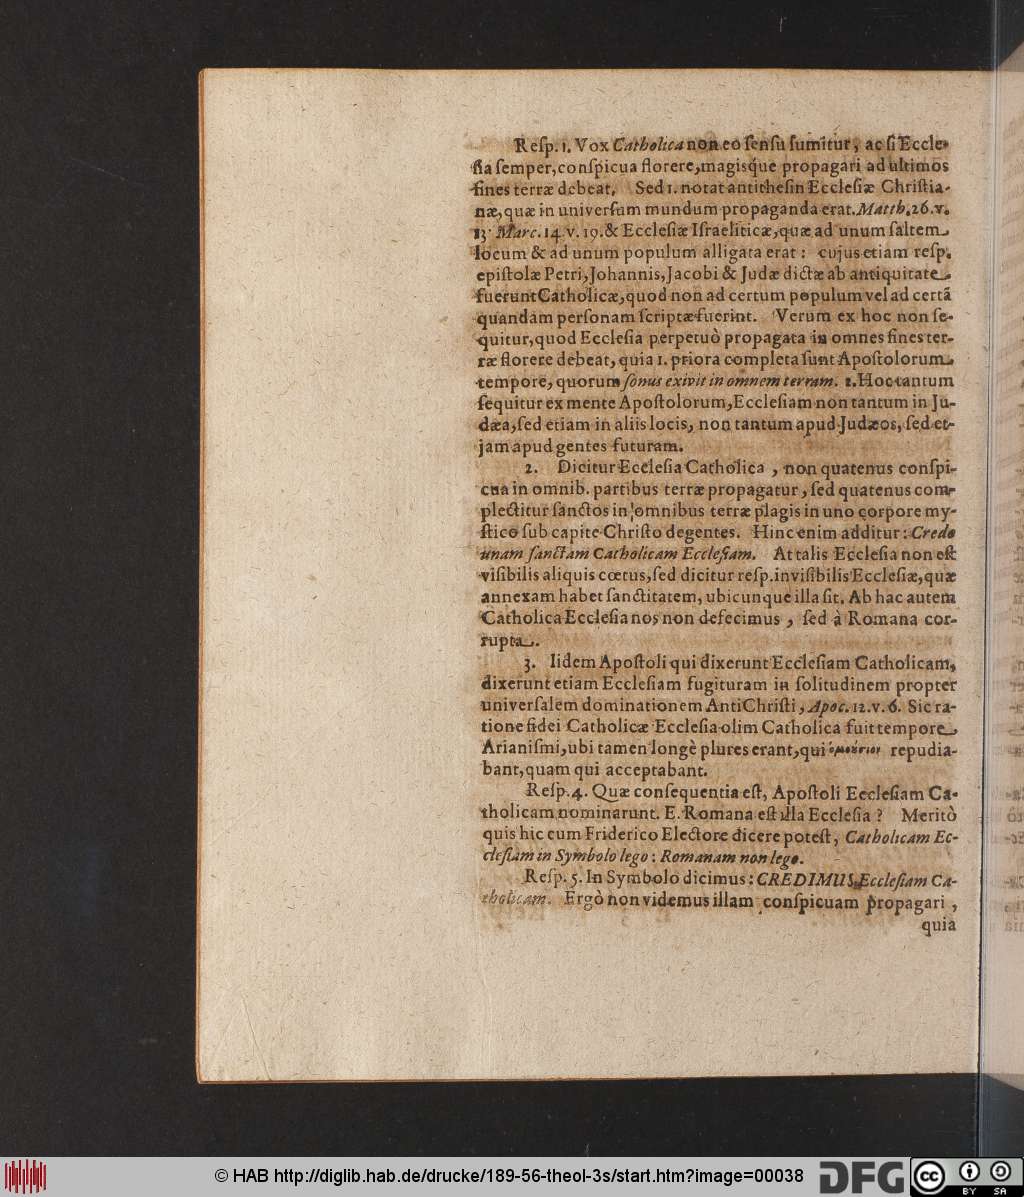 Reſp. 1. Vox Catholica non eo ſenſu ſumitur, ac ſi Eccle-
ſia ſemper, conſpicua florere, magisq́ue propagari ad ultimos
fines terræ debeat. Sed 1. notat antitheſin Eccleſiæ Chriſtia-
næ, quæ in univerſum mundum propaganda erat. Matth. 26. v.
13. Marc. 14. v. 19. & Eccleſiæ Iſraeliticæ, quæ ad unum ſaltem
locum & ad unum populum alligata erat: cujus etiam reſp.
epiſtolæ Petri, Johannis, Jacobi & Judæ dictæ ab antiquitate
fuerunt Catholicæ, quod non ad certum populum vel ad certã
quandam perſonam ſcriptæ fuerint. Verum ex hoc non ſe-
quitur, quod Eccleſia perpetuò propagata in omnes fines ter-
ræ florere debeat, quia 1. priora completa ſunt Apoſtolorum
tempore, quorum ſonus exivit in omnem terram. 2. Hoc tantum
ſequitur ex mente Apoſtolorum, Eccleſiam non tantum in Ju-
dæa, ſed etiam in aliis locis, non tantum apud Judæos, ſed et-
jam apud gentes futuram.
2. Dicitur Eccleſia Catholica, non quatenus conſpi-
cua in omnib. partibus terræ propagatur, ſed quatenus com-
plectitur ſanctos in omnibus terræ plagis in uno corpore my-
ſtico ſub capite Chriſto degentes. Hinc enim additur: Credo
unam ſanctam Catholicam Eccleſiam. At talis Eccleſia non eſt
viſibilis aliquis cœtus, ſed dicitur reſp. inviſibilis Eccleſiæ, quæ
annexam habet ſanctitatem, ubicunque illa ſit. Ab hac autem
Catholica Eccleſia nos non defecimus, ſed à Romana cor-
rupta.
3. Iidem Apoſtoli qui dixerunt Eccleſiam Catholicam,
dixerunt etiam Eccleſiam fugituram in ſolitudinem propter
univerſalem dominationem AntiChriſti, Apoc. 12. v. 6. Sic ra-
tione fidei Catholicæ Eccleſia olim Catholica fuit tempore
Arianiſmi, ubi tamen longè plures erant, qui ὁμούσιον repudia-
bant, quam qui acceptabant.
Reſp. 4. Quæ conſequentia eſt, Apoſtoli Eccleſiam Ca-
tholicam nominarunt. E. Romana eſt illa Eccleſia? Meritò
quis hic cum Friderico Electore dicere poteſt, Catholicam Ec-
cleſiam in Symbolo lego: Romanam non lego.
Reſp. 5. In Symbolo dicimus: CREDIMUS Eccleſiam Ca-
tholicam. Ergò non videmus illam conſpicuam propagari,
quia
© HAB http://diglib.hab.de/drucke/189-56-theol-3s/start.htm?image=00038
DFG
cc
BY SA